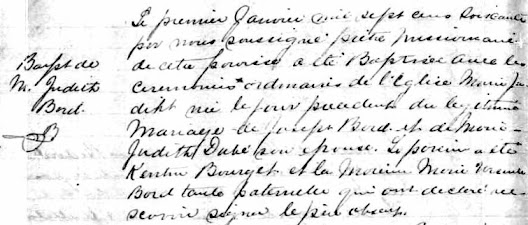 Le premier Janvier mil sept cens soixante
par nous soussigné prêtre missionnaire
Bapst de
de cette paroisse a été Baptisée avec les
M. Judith
ceremonies ordinaires de l'Eglise Marie Ju
Bord.
dikt née le jour precedent du legitime
Mariage de Joseph Bord et de Marie
B
Judith Dubé son epouse. Le parein a été
Bourget et la Moreine Marie
Bord tante paternelle qui ont declaré ne
scavoir signer le pere absent.